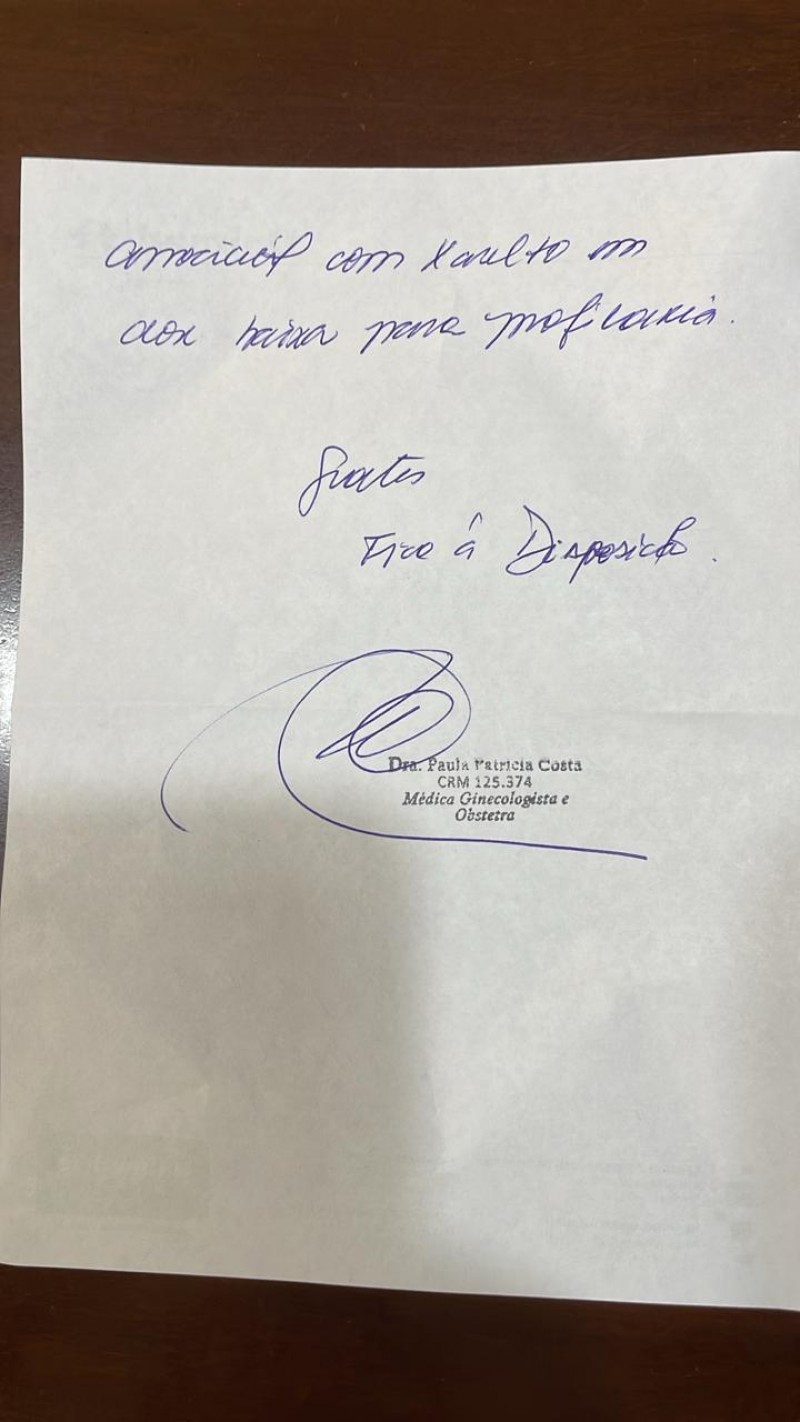 associação com Xarelto em
dose baixa para profilaxia.
Grata
Fico à Disposição.
Dra. Paula Patricia Costa
CRM 125.374
Médica Ginecologista e
Obstetra